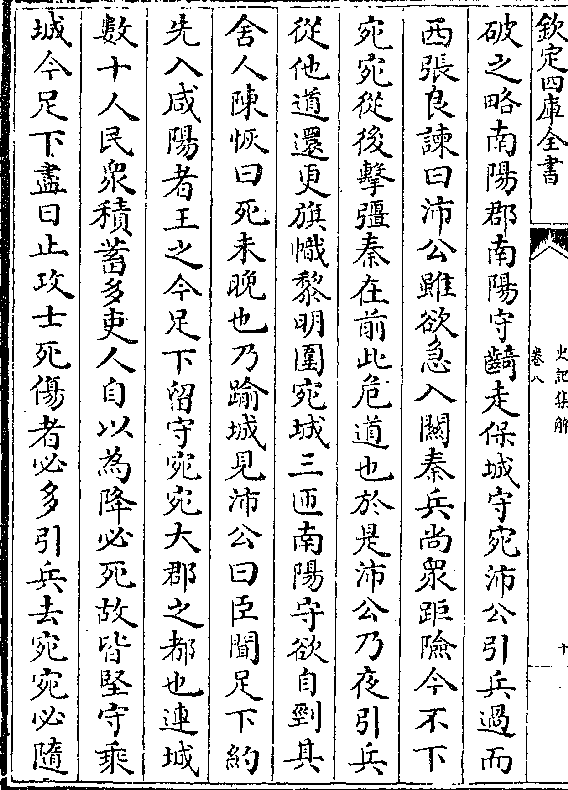 欽定四庫全書
史記集解
卷八
十
破之略南陽郡南陽守齮走保城守宛沛公引兵過而
西張良諫曰沛公雖欲急入關秦兵尚衆距險今不下
宛宛從後擊彊秦在前此危道也於是沛公乃夜引兵
從他道還更旗幟黎明圍宛城三匝南陽守欲自剄其
舍人陳恢曰死未晚也乃踰城見沛公曰臣聞足下約
先入咸陽者王之今足下留守宛宛大郡之都也連城
數十人民衆積蓄多吏人自以為降必死故皆堅守乗
城今足下盡日止攻士死傷者必多引兵去宛宛必隨